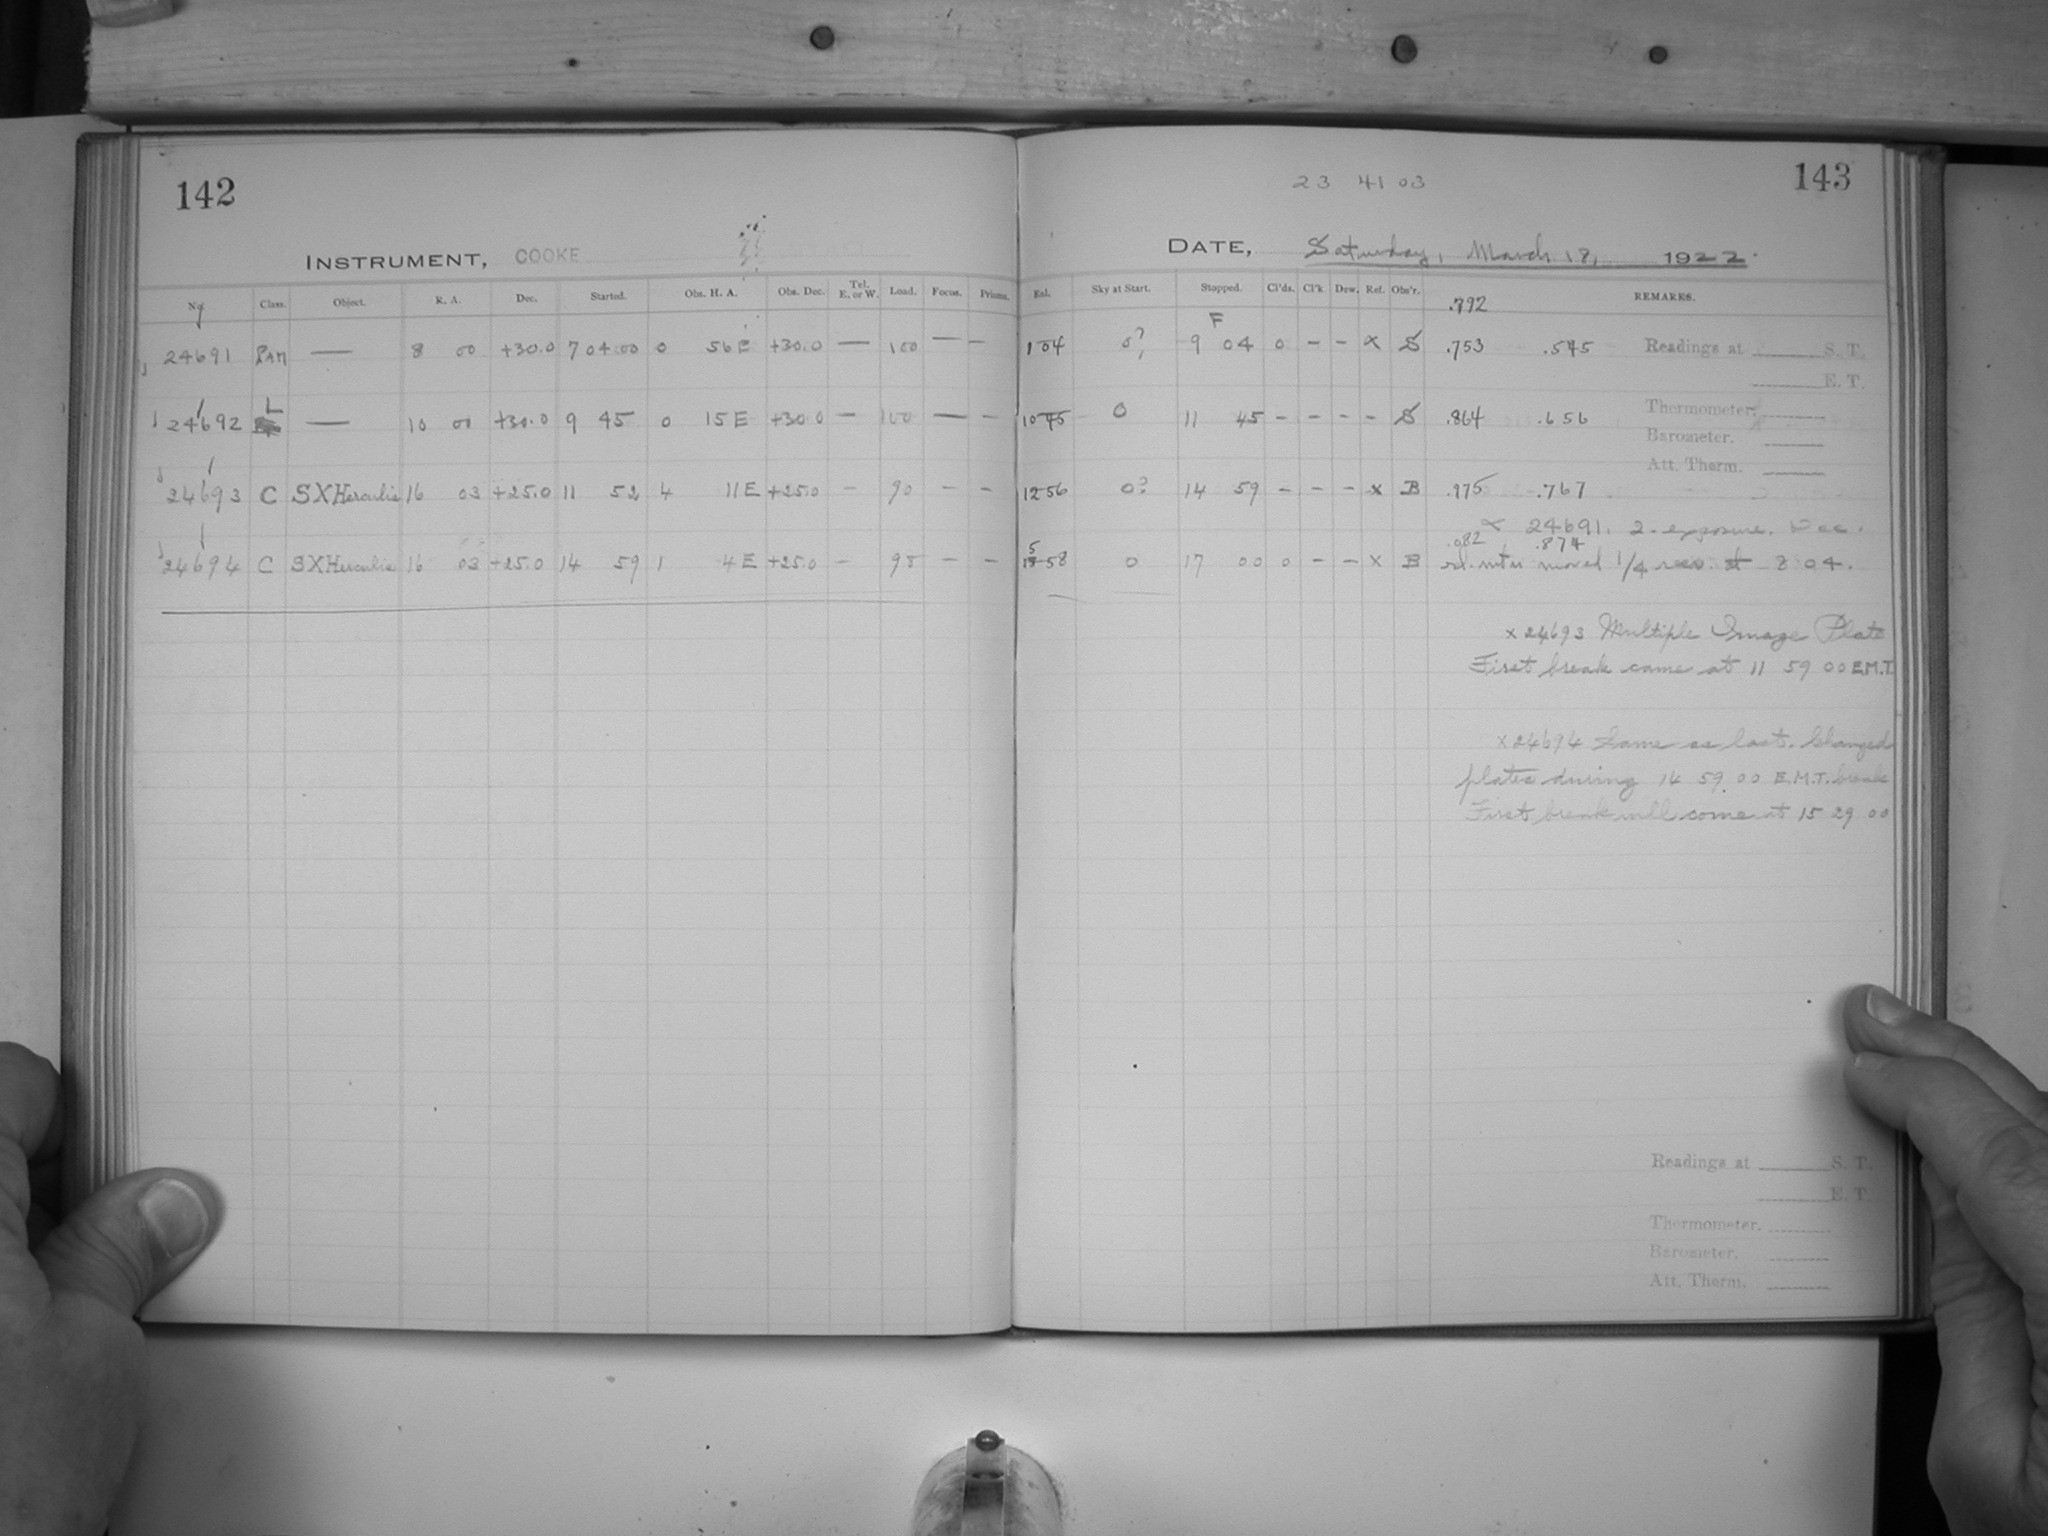 142
INSTRUMENT, COOKE
No. Class. Object. R. A. Dec. Started. Obs. H. A. Obs. Dec. Tel. E. or W. Load. Focus. Prisms.
24691 — 8 00 +30.0 7 04 00 0 56 E +30.0 — 100 — —
24692 L — 10 00 +30.0 9 45 0 15 E +30.0 — 100 — —
24693 C SX Herculis 16 03 +25.0 11 52 4 11 E +25.0 — 90 — —
24694 C SX Herculis 16 03 +25.0 14 59 1 4 E +25.0 — 95 — —
23 41 03
143
DATE, Saturday, March 18, 1922.
Exl. Sky at Start. Stopped. Cl'ds. Cl'k. Drw. Ref. Obs'r. REMARKS.
.792
F
104 0? 9 04 0 – – x S .753 .545 Readings at S. T.
E. T.
1045 0 11 45 – – – – S .864 .656 Thermometer.
Barometer.
Att. Therm.
1256 0? 14 59 – – – x B .975 .767
x 24691. 2-exposure.
.082 .874
5
58 0 17 00 0 – – x B moved 1/4 rev. at 8 04.
x 24693 Multiple Image Plate
First break came at 11 59 00 E.M.T.
x 24694 Same as last. Changed
plates during 14 59 00 E.M.T. break
First break will come at 15 29 00
Readings at S. T.
E. T.
Thermometer.
Barometer.
Att. Therm.